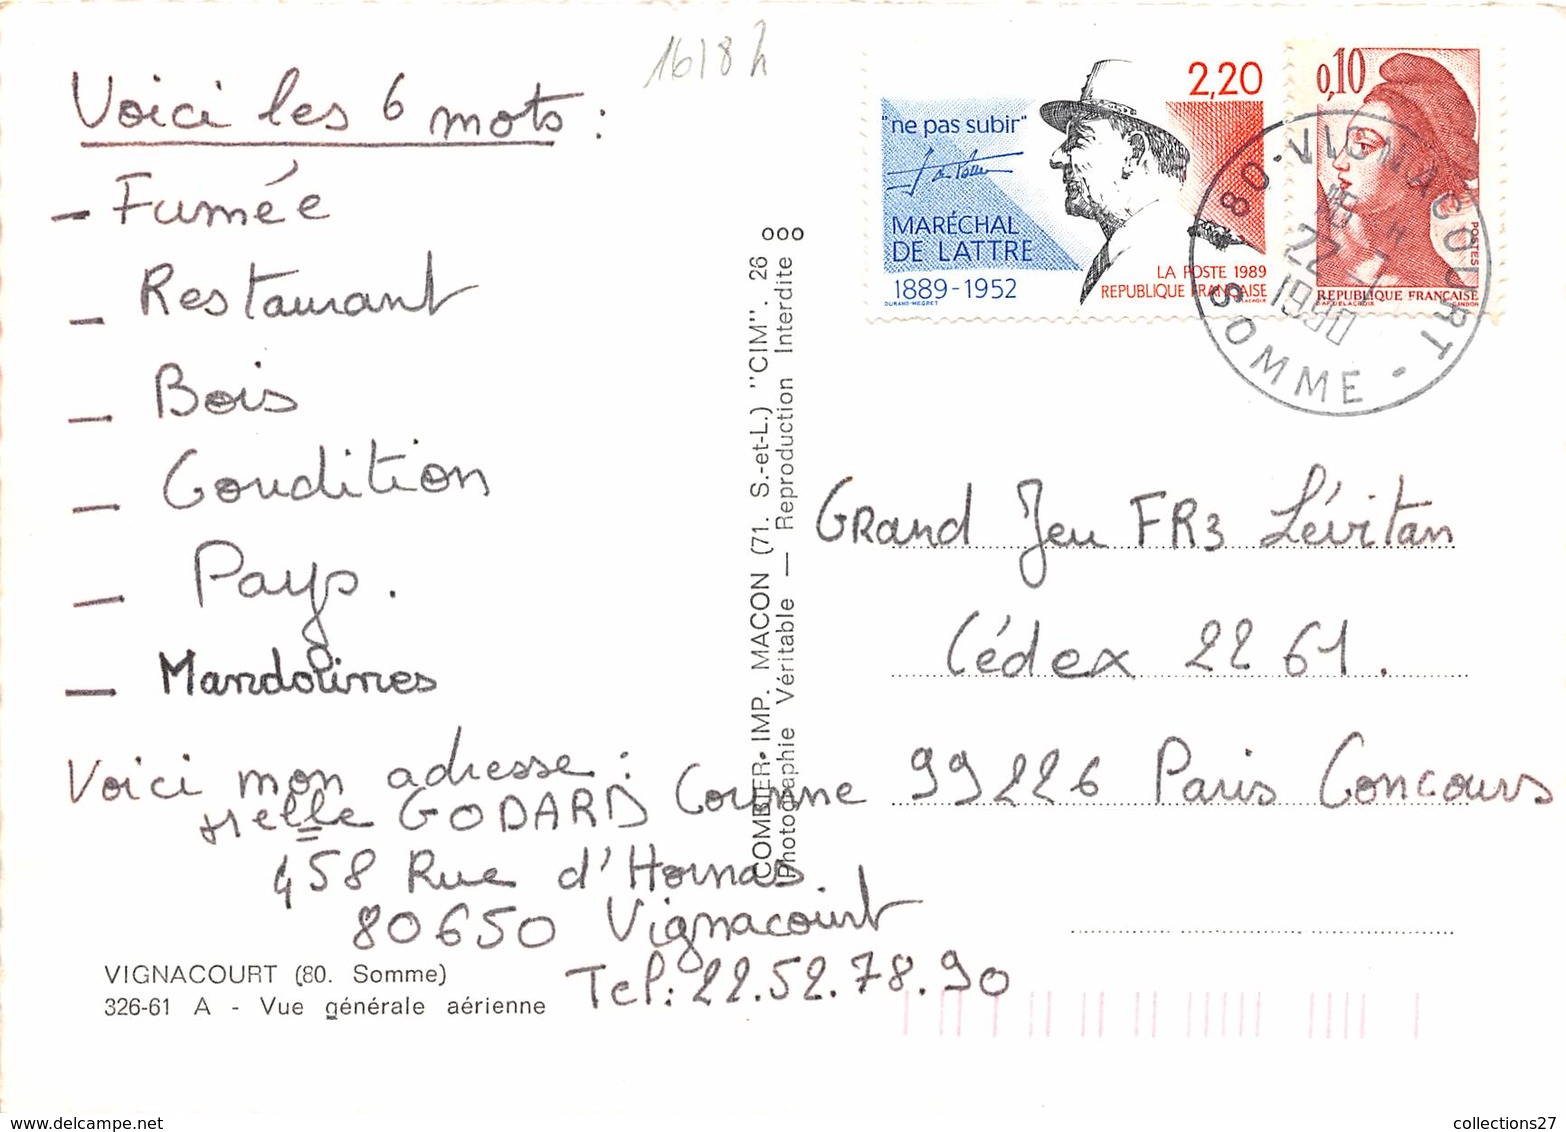 1618h
Voici les 6 mots :
- Fumée
- Restaurant
- Bois
- Condition
- Pays.
- Mandolines
Voici mon adresse :
Melle GODARD Corinne
458 Rue d'Hornas
80650 Vignacourt
Tel: 22.52.78.90
VIGNACOURT (80. Somme)
326-61 A - Vue générale aérienne
COMBIER IMP. MACON (71. S.-et-L.) "CIM". 26
Photographie Véritable — Reproduction Interdite
2,20
"ne pas subir"
MARÉCHAL
DE LATTRE
1889-1952
LA POSTE 1989
REPUBLIQUE FRANÇAISE
DURAND-MEGRET
0,10
POSTES
REPUBLIQUE FRANÇAISE
D'AP. DELACROIX GANDON
80 • VIGNACOURT •
22 -1
1990
SOMME
GRand Jeu FR3 Lévitan
Cédex 22 61.
99226 Paris Concours
collections27